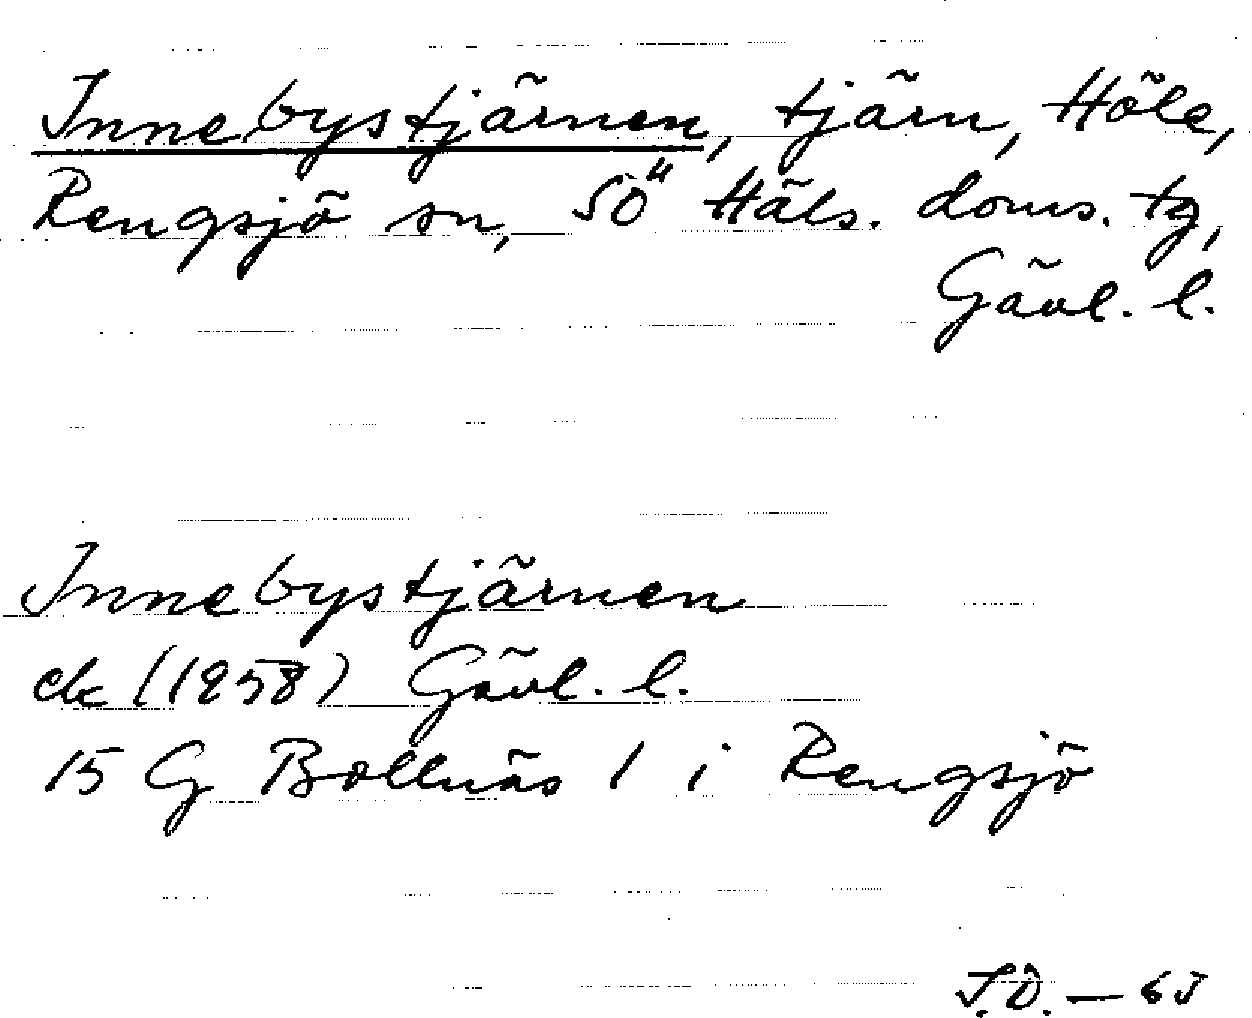 Innebystjärnen, tjärn, Höle,
Rengsjö sn, SÖ Häls. doms. tg,
Gävl. l.
Innebystjärnen
ek (1958) Gävl. l.
15 G Bollnäs 1 i Rengsjö